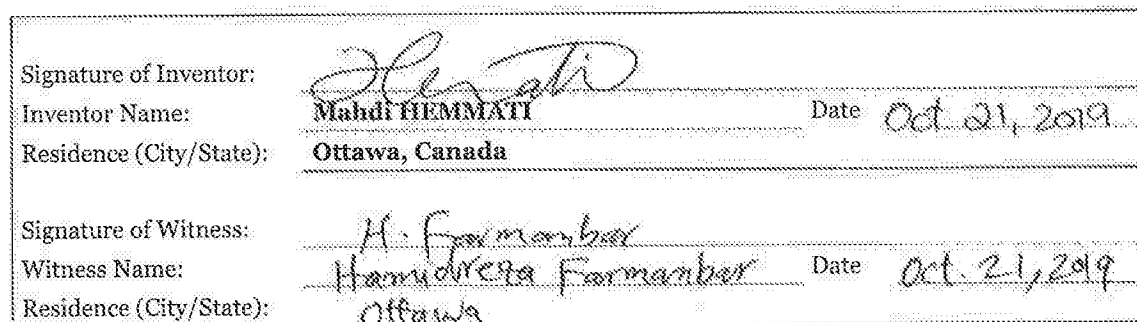 Signature of Inventor: Hemmati
Inventor Name: Mahdi HEMMATI Date Oct 21, 2019
Residence (City/State): Ottawa, Canada
Signature of Witness: H. Farmanbar
Witness Name: Hamidreza Farmanbar Date Oct. 21, 2019
Residence (City/State): Ottawa